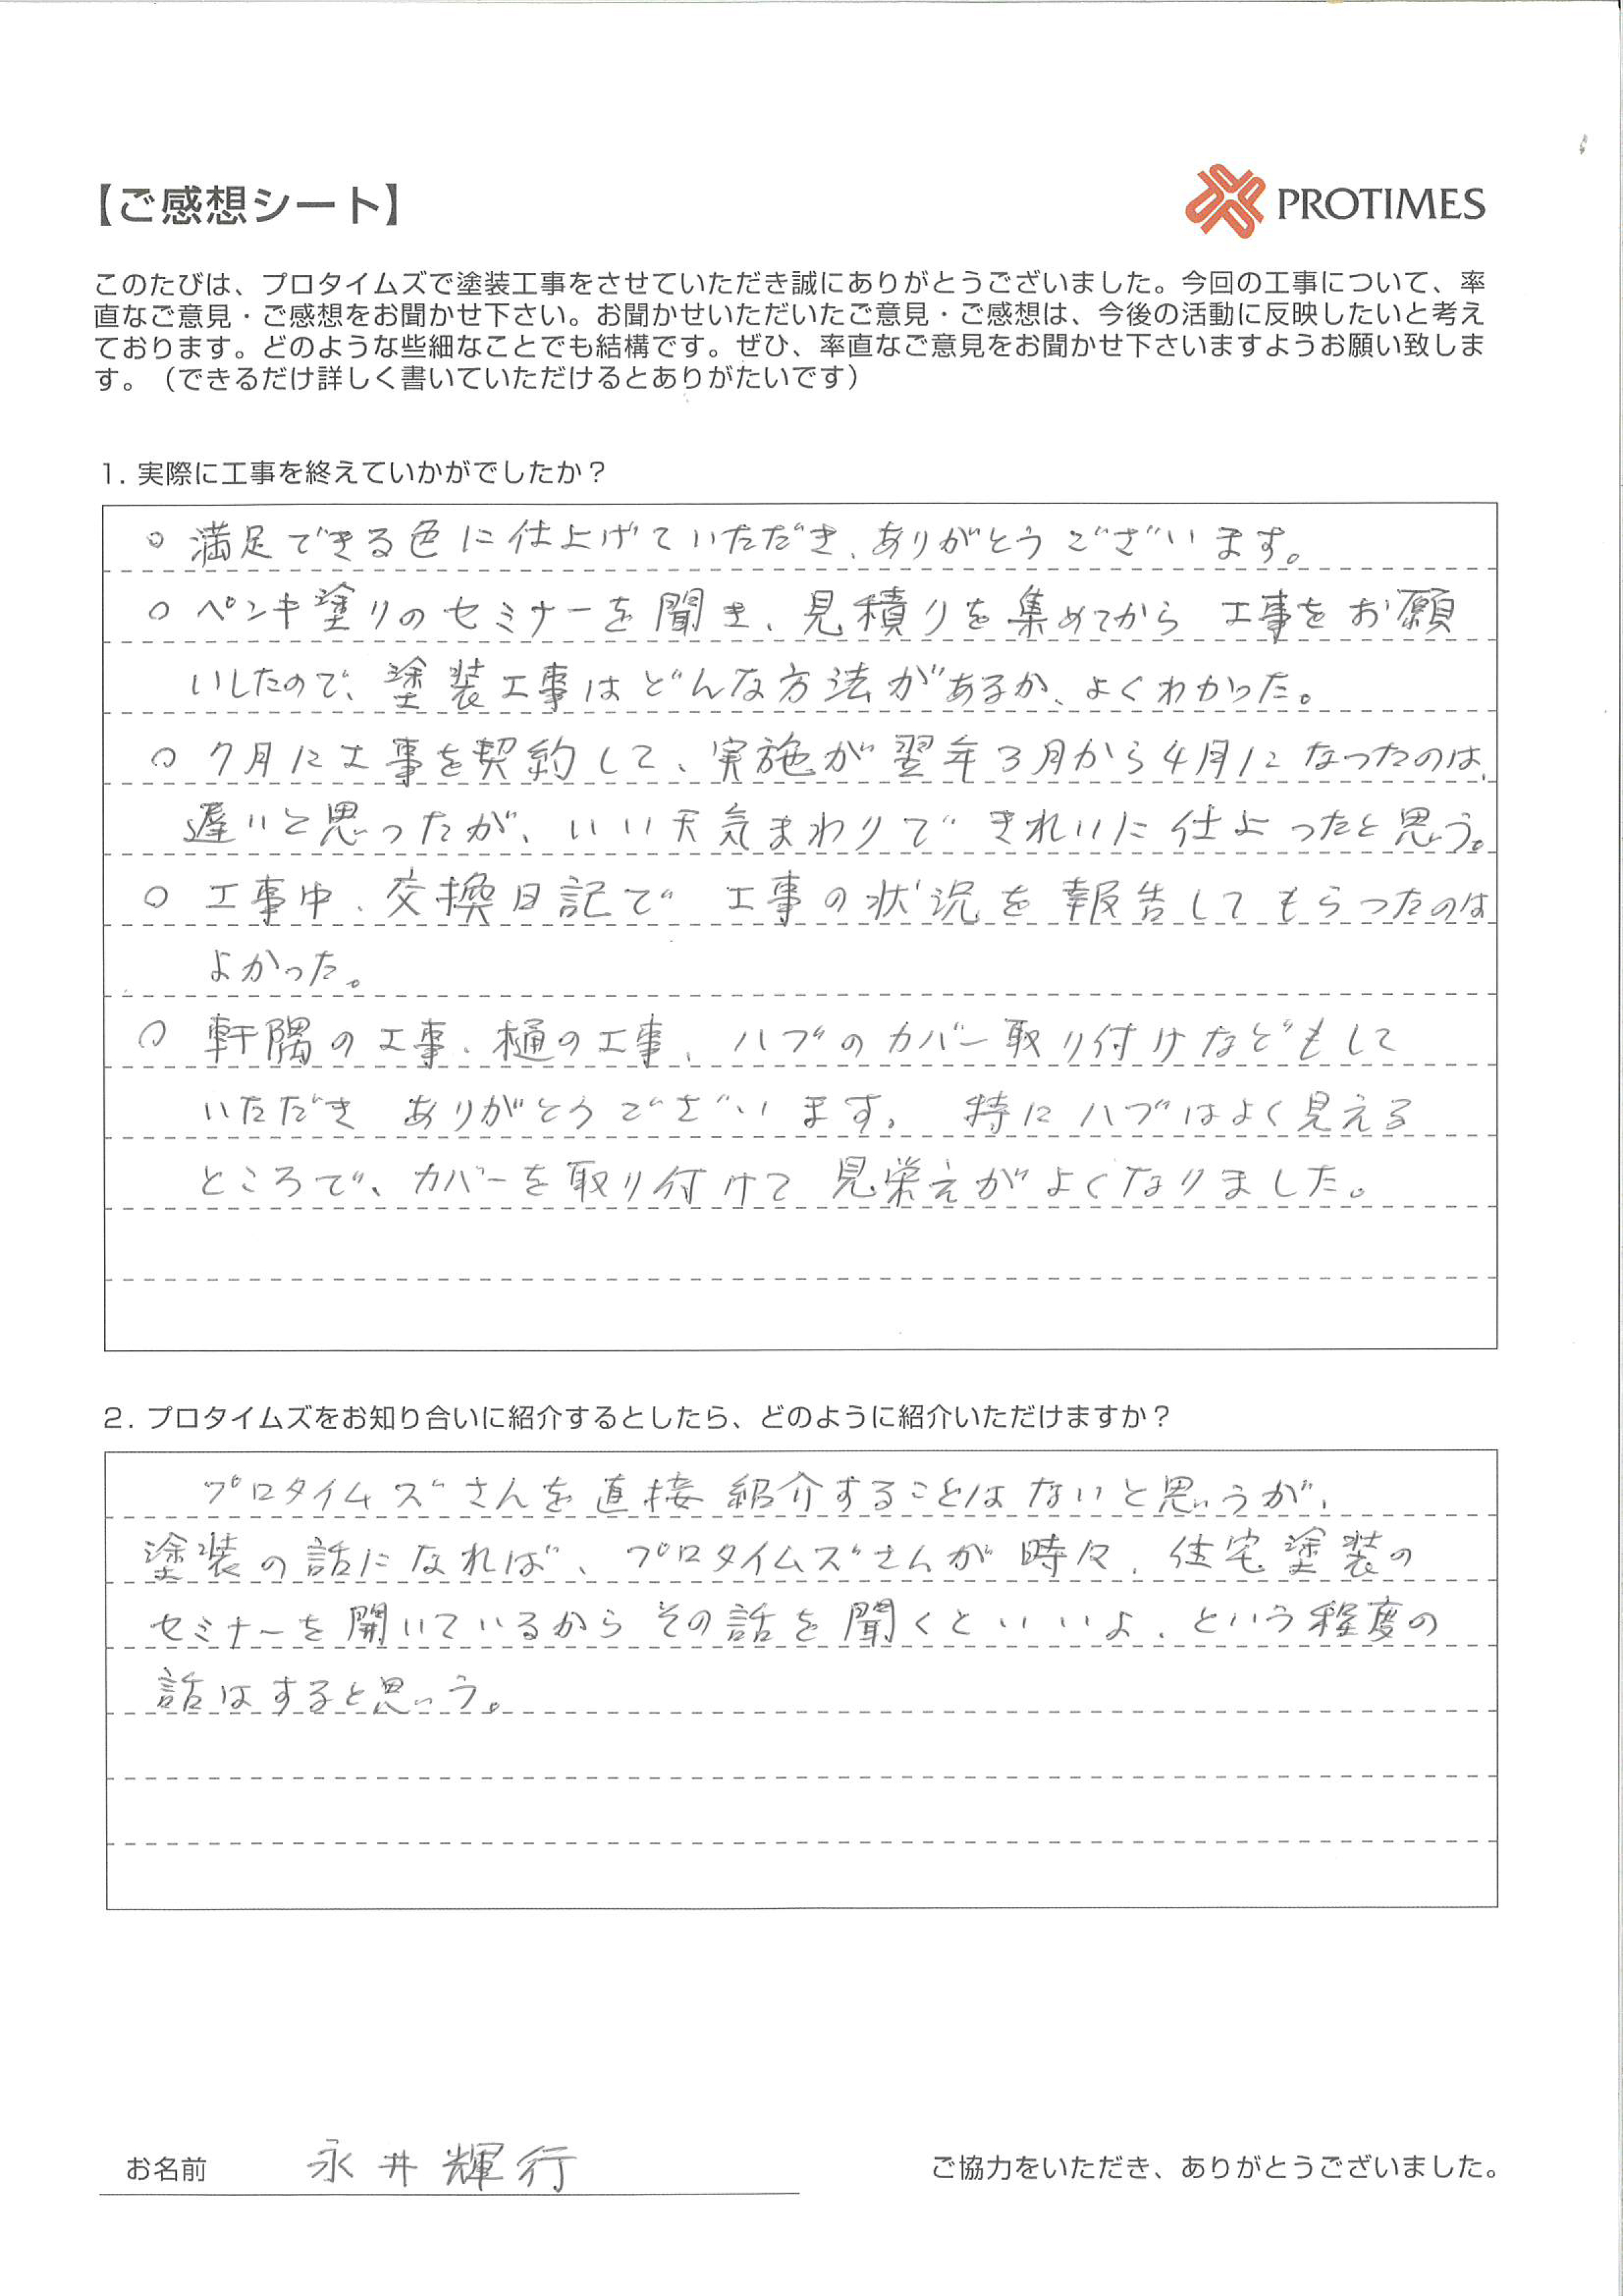 【ご感想シート】
PROTIMES
このたびは、プロタイムズで塗装工事をさせていただき誠にありがとうございました。今回の工事について、率
直なご意見・ご感想をお聞かせ下さい。お聞かせいただいたご意見・ご感想は、今後の活動に反映したいと考え
ております。どのような些細なことでも結構です。ぜひ、率直なご意見をお聞かせ下さいますようお願い致しま
す。（できるだけ詳しく書いていただけるとありがたいです）
1. 実際に工事を終えていかがでしたか？
○ 満足できる色に仕上げていただき、ありがとうございます。
○ ペンキ塗りのセミナーを聞き、見積りを集めてから 工事をお願
いしたので、塗装工事はどんな方法があるか、よくわかった。
○ 7月に工事を契約して、実施が翌年3月から4月になったのは、
遅いと思ったが、いい天気まわりで きれいに仕上ったと思う。
○ 工事中、交換日記で 工事の状況を報告してもらったのは
よかった。
○ 軒隅の工事、樋の工事、ハブのカバー取り付けなどもして
いただき ありがとうございます。 特にハブはよく見える
ところで、カバーを取り付けて 見栄えがよくなりました。
2. プロタイムズをお知り合いに紹介するとしたら、どのように紹介いただけますか？
プロタイムズさんを直接紹介することはないと思うが、
塗装の話になれば、プロタイムズさんが時々、住宅塗装の
セミナーを開いているから その話を聞くといいよ、という程度の
話はすると思う。
お名前 永井輝行
ご協力をいただき、ありがとうございました。